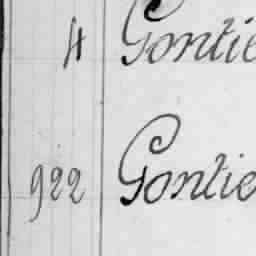 4 Gontie
922 Gontie